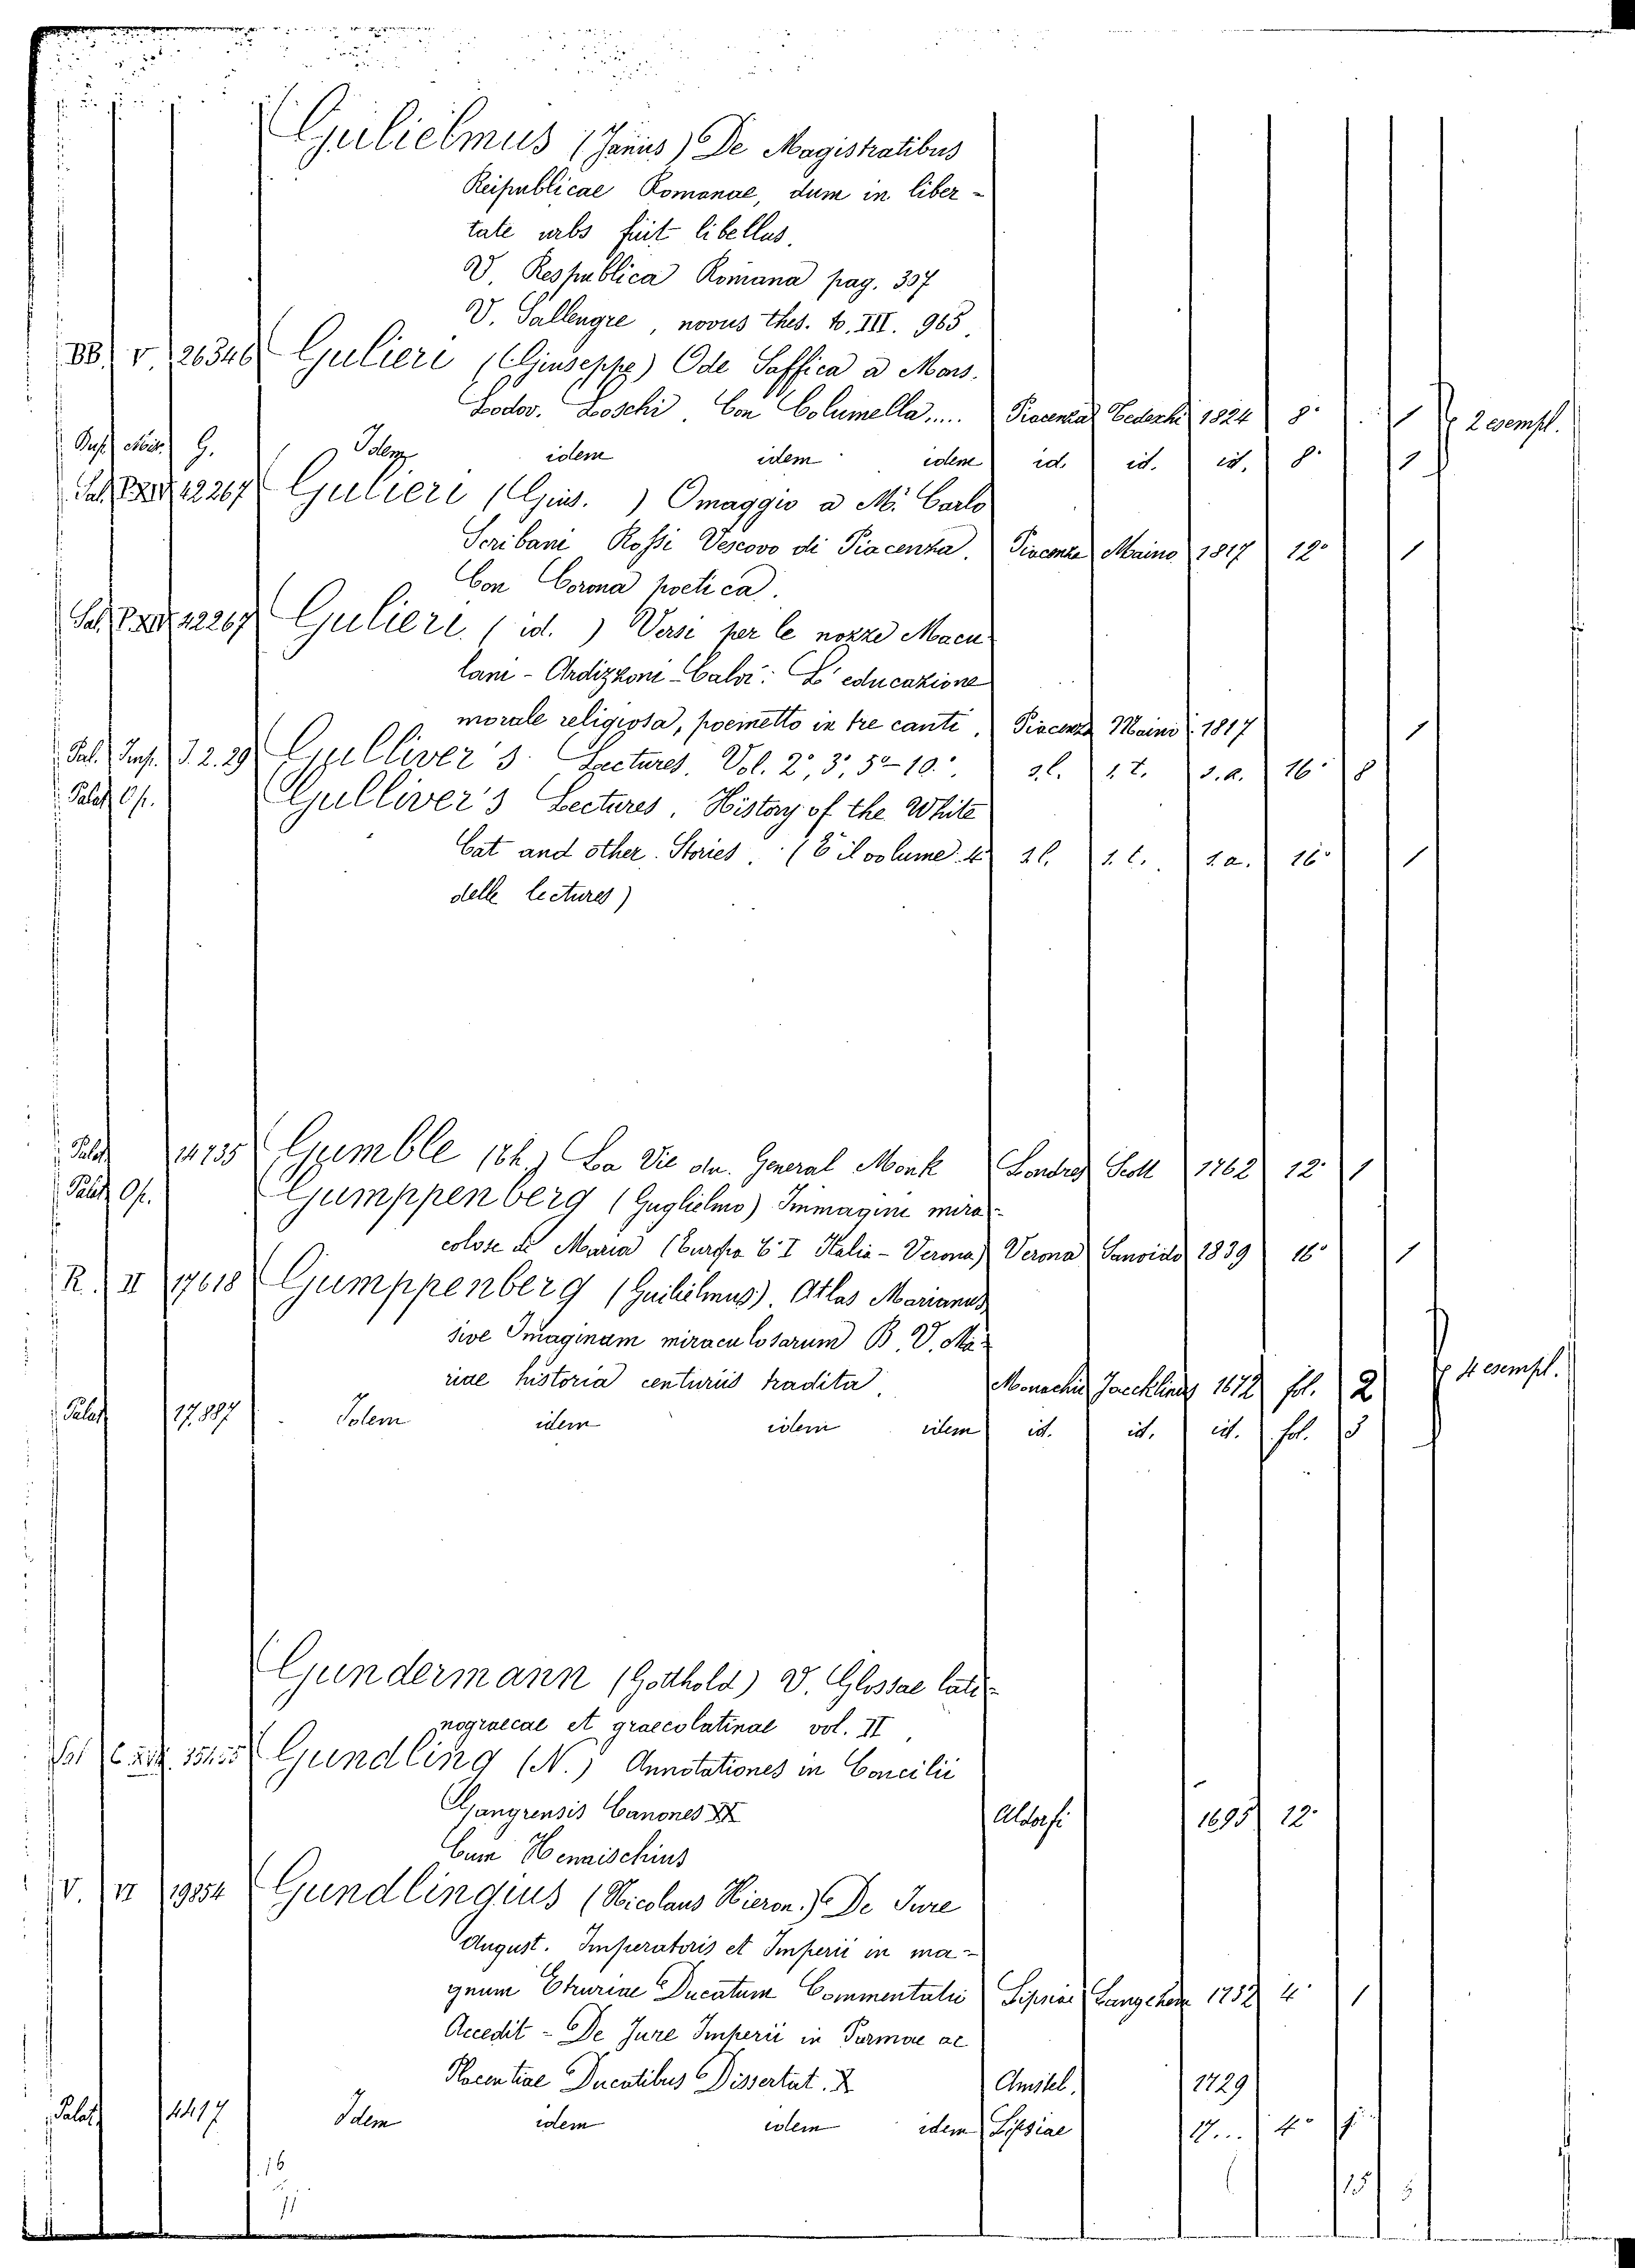 Gulielmus (Janus) De Magistratibus
Reipublicae Romanae, dum in liber-
tate urbs fuit libellus.
V. Respublica Romana pag. 337
V. Sallengre, novus thes. to. III. 965.
BB. V 26346 Gulieri (Giuseppe) Ode Saffica a Mons.
Lodov. Loschi. Con Columella..... Piacenza 1824 8° 2 esempl.
G. Idem idem idem idem id. id. id. 8° 1
12267 Gulieri (Gius. ) Omaggio a M.r Carlo
Scribani Rossi Vescovo di Piacenza. Piacenza Maino 1817 12° 1
Con Corona poetica.
12267 Gulieri (id. ) Versi per le nozze Macu
lani - Ardizzoni - Calvi: L'educazione
morale religiosa, poemetto in tre canti, Piacenza Maini 1817 1
Pal. J. 2. 29 Gulliver's Lectures. Vol. 2°, 3°, 5°-10°. s.l. s.t. s.a. 16° 8
Palat. Op. Gulliver's Lectures. History of the White
Cat and other Stories. (È il volume 4 s.l. s.t. s.a. 16° 1
delle lectures)
Palat. 14735 Gumble (Th.) La Vie du General Monk Londres Scott 1762 12° 1
Palat. Op. Gumppenberg (Guglielmo) Immagini mira-
colose di Maria (Europa È I Italia - Verona) Verona Sanvido 1839 16° 1
R. II 17618 Gumppenberg (Guilielmus). Atlas Marianus
sive Imaginum miraculosarum B. V. Ma-
riae historia centuriis tradita. Monachii Jaecklinus 1672 fol. 2 4 esempl.
Palat. 17.887 Idem idem idem idem id. id. id. fol. 3
Gundermann (Gotthold) V. Glossae lati-
nograecae et graecolatinae vol. II.
Gundling (N.) Annotationes in Concilii
Gangrensis Canones XX Aldorfi 1695 12°
Cum Hennischius
V. VI 19854 Gundlingius (Nicolaus Hieron.) De Jure
August. Imperatoris et Imperii in ma-
gnum Etruriae Ducatum Commentatio Lipsiae 1732 4° 1
Accedit - De Jure Imperii in Parmae ac
Placentiae Ducatibus Dissertat. Amstel. 1729
Palat. 4417 Idem idem idem idem Lipsiae 17... 4° 1
16
11
15